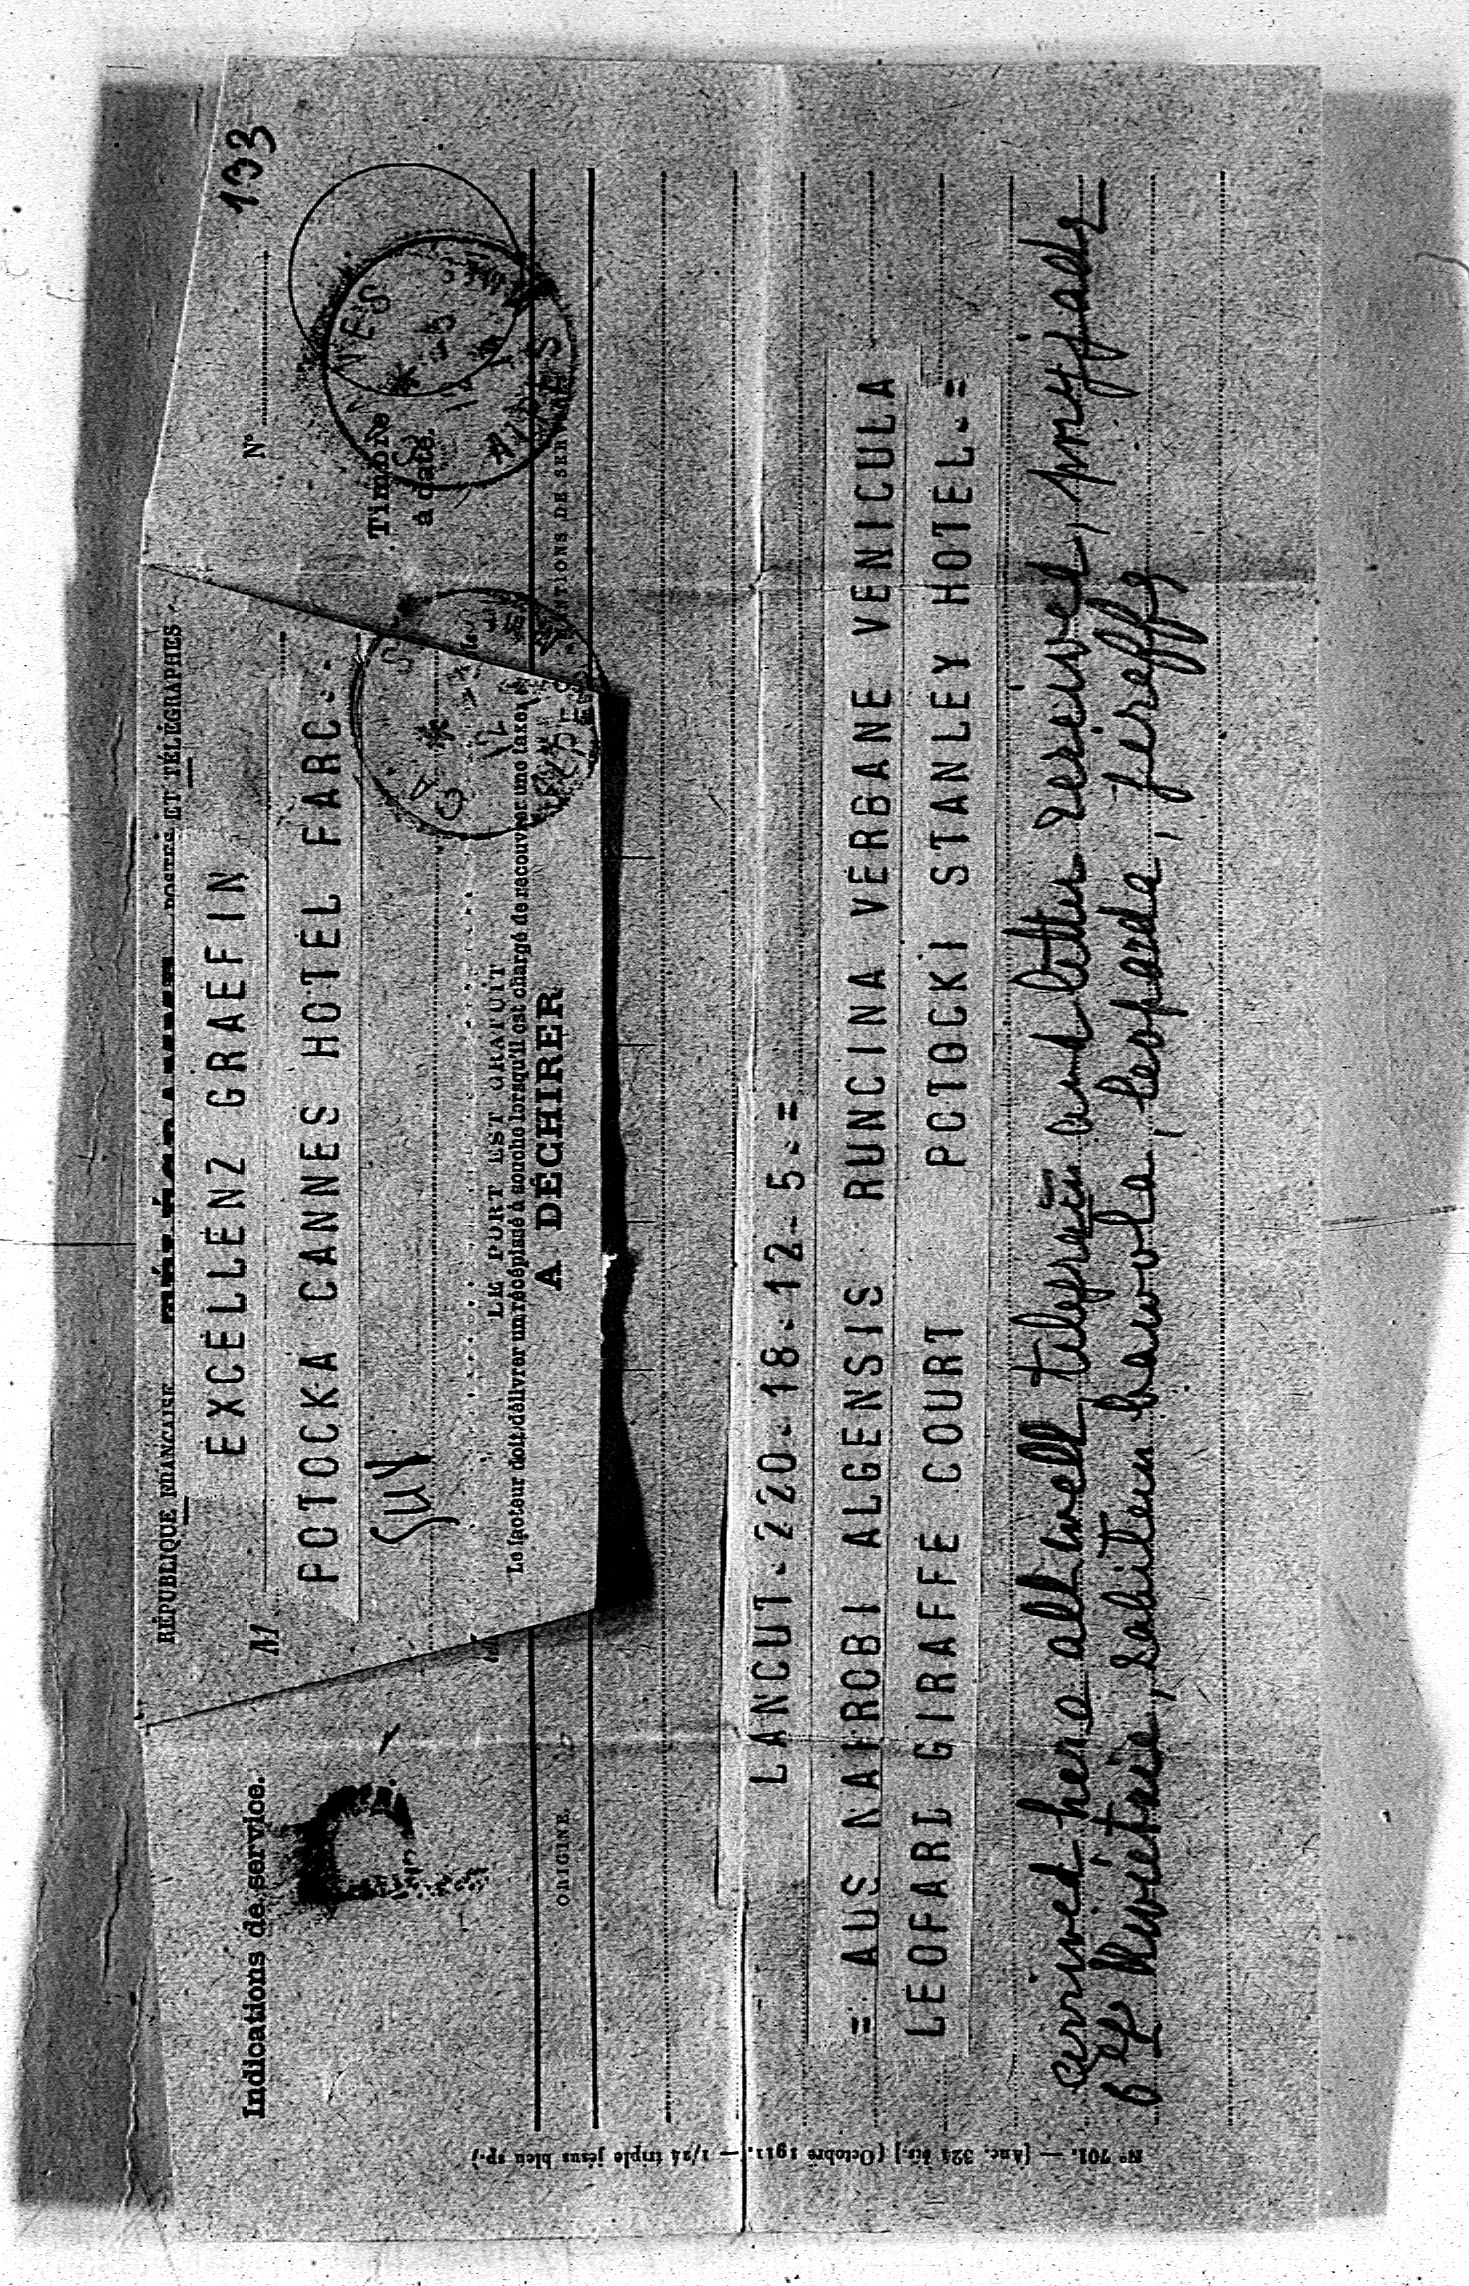 RÉPUBLIQUE FRANÇAISE POSTES ET TÉLÉGRAPHES
Indications de service.
N° 103
EXCELLENZ GRAEFIN
POTOCKA CANNES HOTEL FARC--
Timbre
à date.
LE PORT EST GRATUIT
Le facteur doit délivrer un récépissé à souche lorsqu'il est chargé de recouvrer une taxe.
A DÉCHIRER
ORIGINE. MENTIONS DE SERVICE
LANCUT-220-18-12-5-=
= AUS NAIROBI ALGENSIS RUNCINA VERBANE VENICULA
LEOFARD GIRAFFE COURT POTOCKI STANLEY HOTEL-=
arrived here all well telegram and letter received, my
leopards, giraffe
N° 701. — [Anc. 324 bis.] (Octobre 1911. — 1/24 triple jésus bleu sp.)